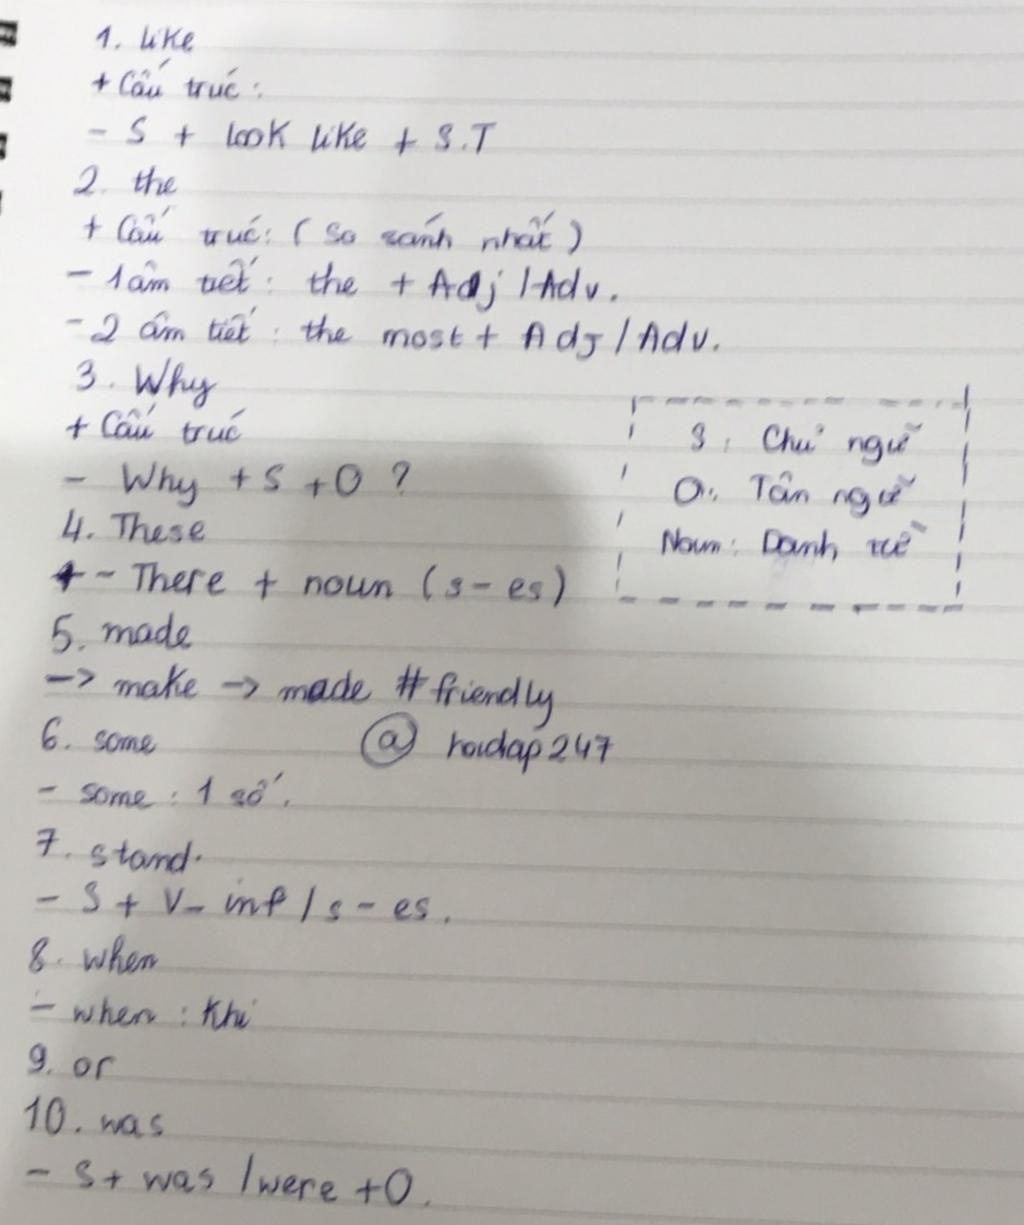 1. like
+ Cấu trúc:
- S + look like + S.T
2. the
+ Cấu trúc: (So sánh nhất)
- 1 âm tiết: the + Adj / Adv.
- 2 âm tiết: the most + Adj / Adv.
3. Why
+ Cấu trúc
- Why + S + O ?
4. These
+ - There + noun (s - es)
5. made
-> make -> made # friendly
6. some @ hoidap247
- some : 1 số.
7. stand.
- S + V- inf / s - es.
8. when
- when : Khi
9. or
10. was
- S + was / were + O.
S: Chủ ngữ
O: Tân ngữ
Noun: Danh từ